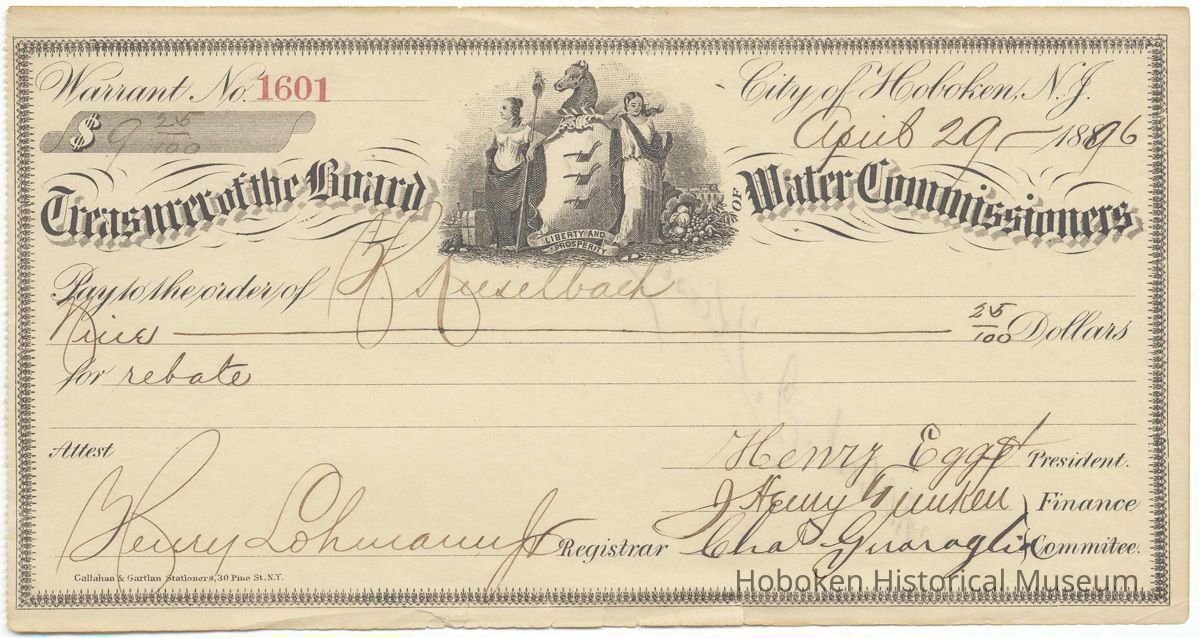 Warrant No. 1601
City of Hoboken, N.J.
$ 9 25/100
April 29 — 1896
Treasurer of the Board OF Water Commissioners
LIBERTY AND PROSPERITY
Pay to the order of H. Kieselbach
Nine 25/100 Dollars
for rebate
Attest
Henry Eggs President.
J Henry Timken Finance
Henry Lohmann Jr Registrar Chas Guaraglia Commitee.
Callahan & Gartlan Stationers, 30 Pine St. N.Y.
Hoboken Historical Museum